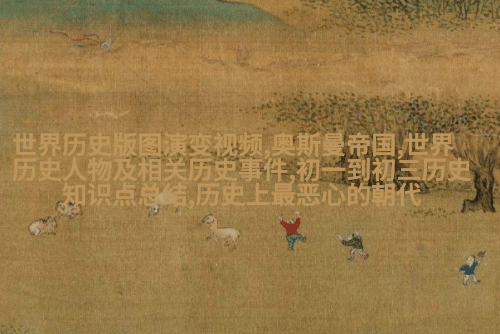 世界历史版图演变视频,奥斯曼帝国,世界
历史人物及相关历史事件,初一到初三历史
知识点总结,历史上最恶心的朝代